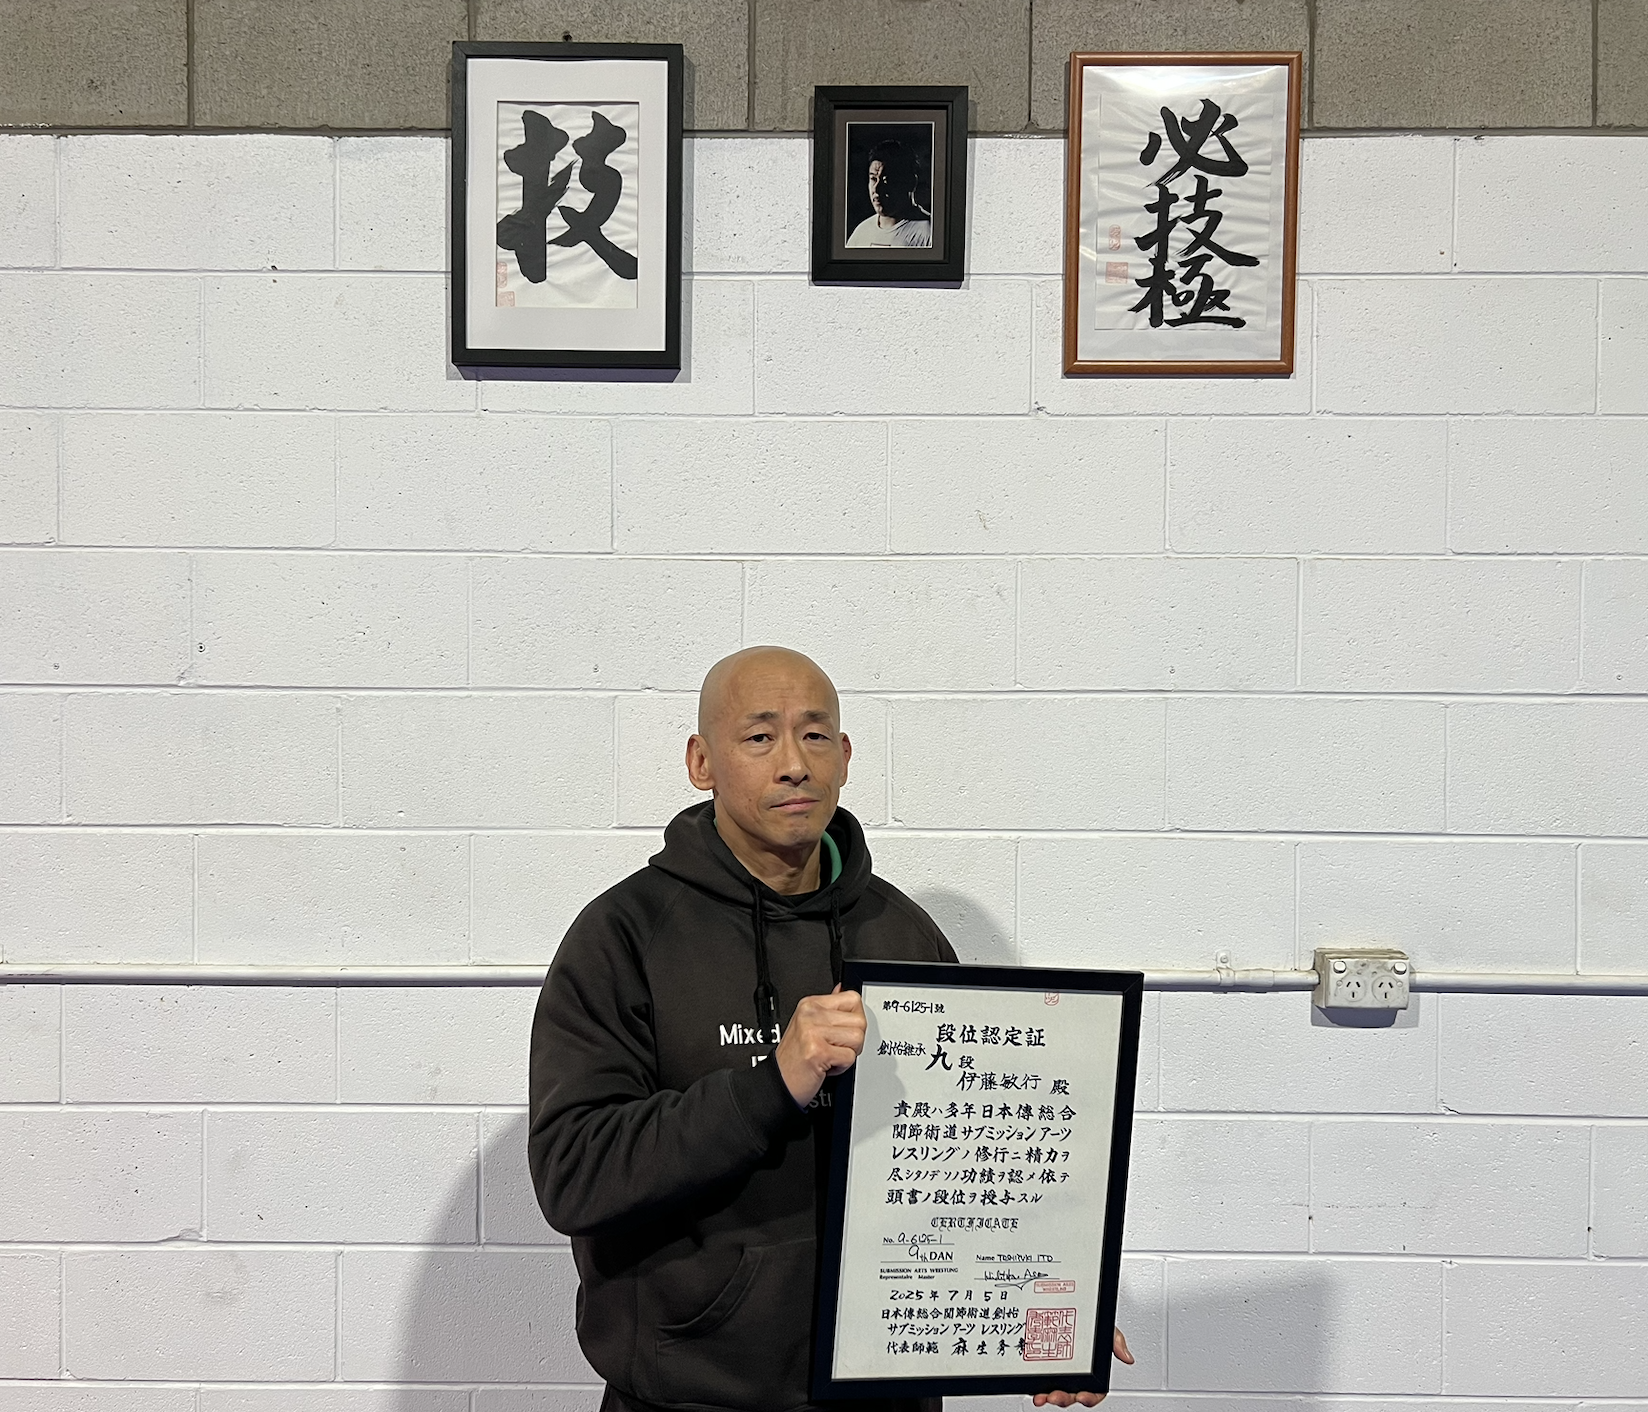 技
必技極
Mixed
第9-6125-1號
段位認定証
創始継承 九段
伊藤敏行 殿
貴殿ハ多年日本傳総合
関節術道サブミッションアーツ
レスリングノ修行ニ精力ヲ
尽シタノデソノ功績ヲ認メ依テ
頭書ノ段位ヲ授与スル
CERTIFICATE
No. 9-6125-1
9th DAN Name TOSHIYUKI ITO
SUBMISSION ARTS WRESTLING
Representaire Master
2025年7月5日
日本傳総合関節術道創始
サブミッション アーツ レスリング
代表師範 麻生秀孝